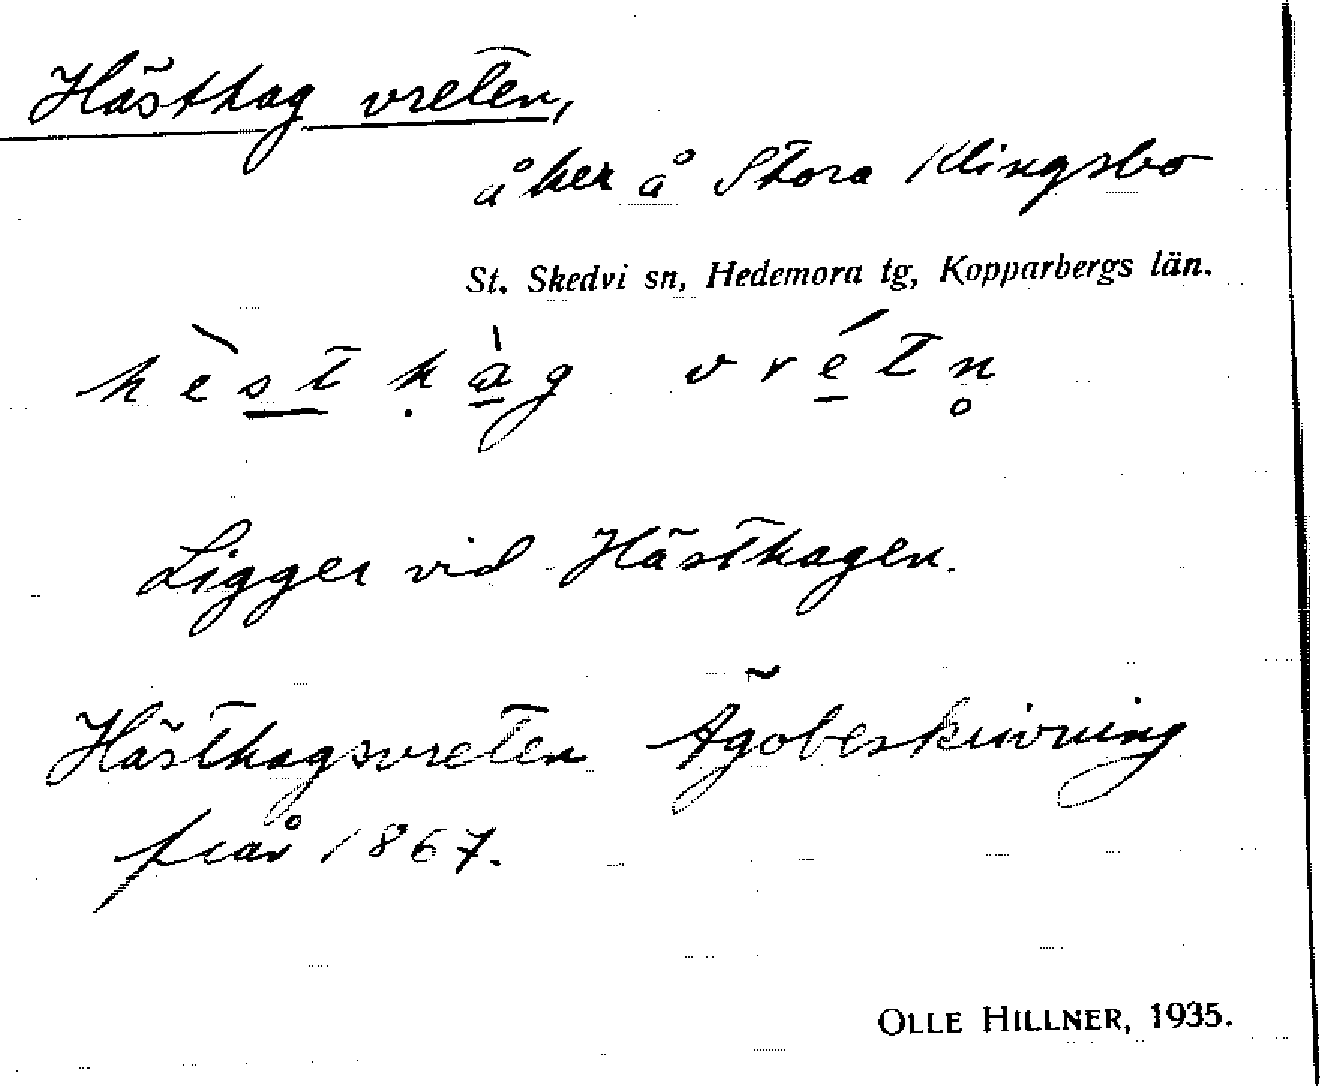 Hästhag vreten,
åker å Stora Klingsbo
St. Skedvi sn, Hedemora tg, Kopparbergs län.
hèst ḥàg vrétn̥
Ligger vid Hästhagen.
Hästhagsvreten Ägobeskrivning
från 1867.
OLLE HILLNER, 1935.